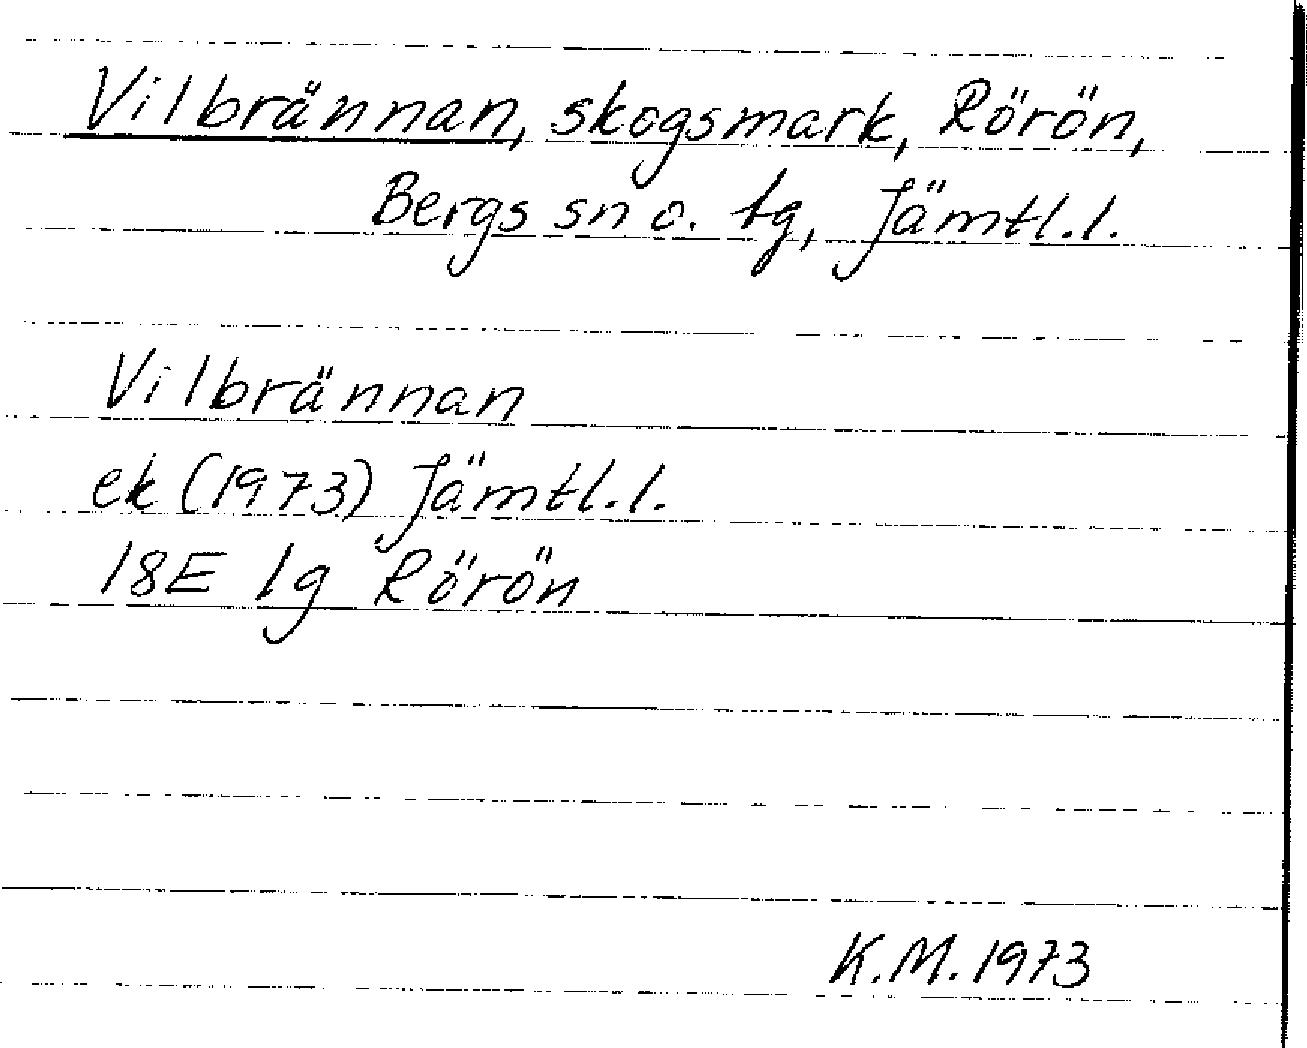 Vilbrännan, skogsmark, Rörön,
Bergs sn o. tg, Jämtl.l.
Vilbrännan
ek (1973) Jämtl.l.
18E 1g Rörön
K.M. 1973